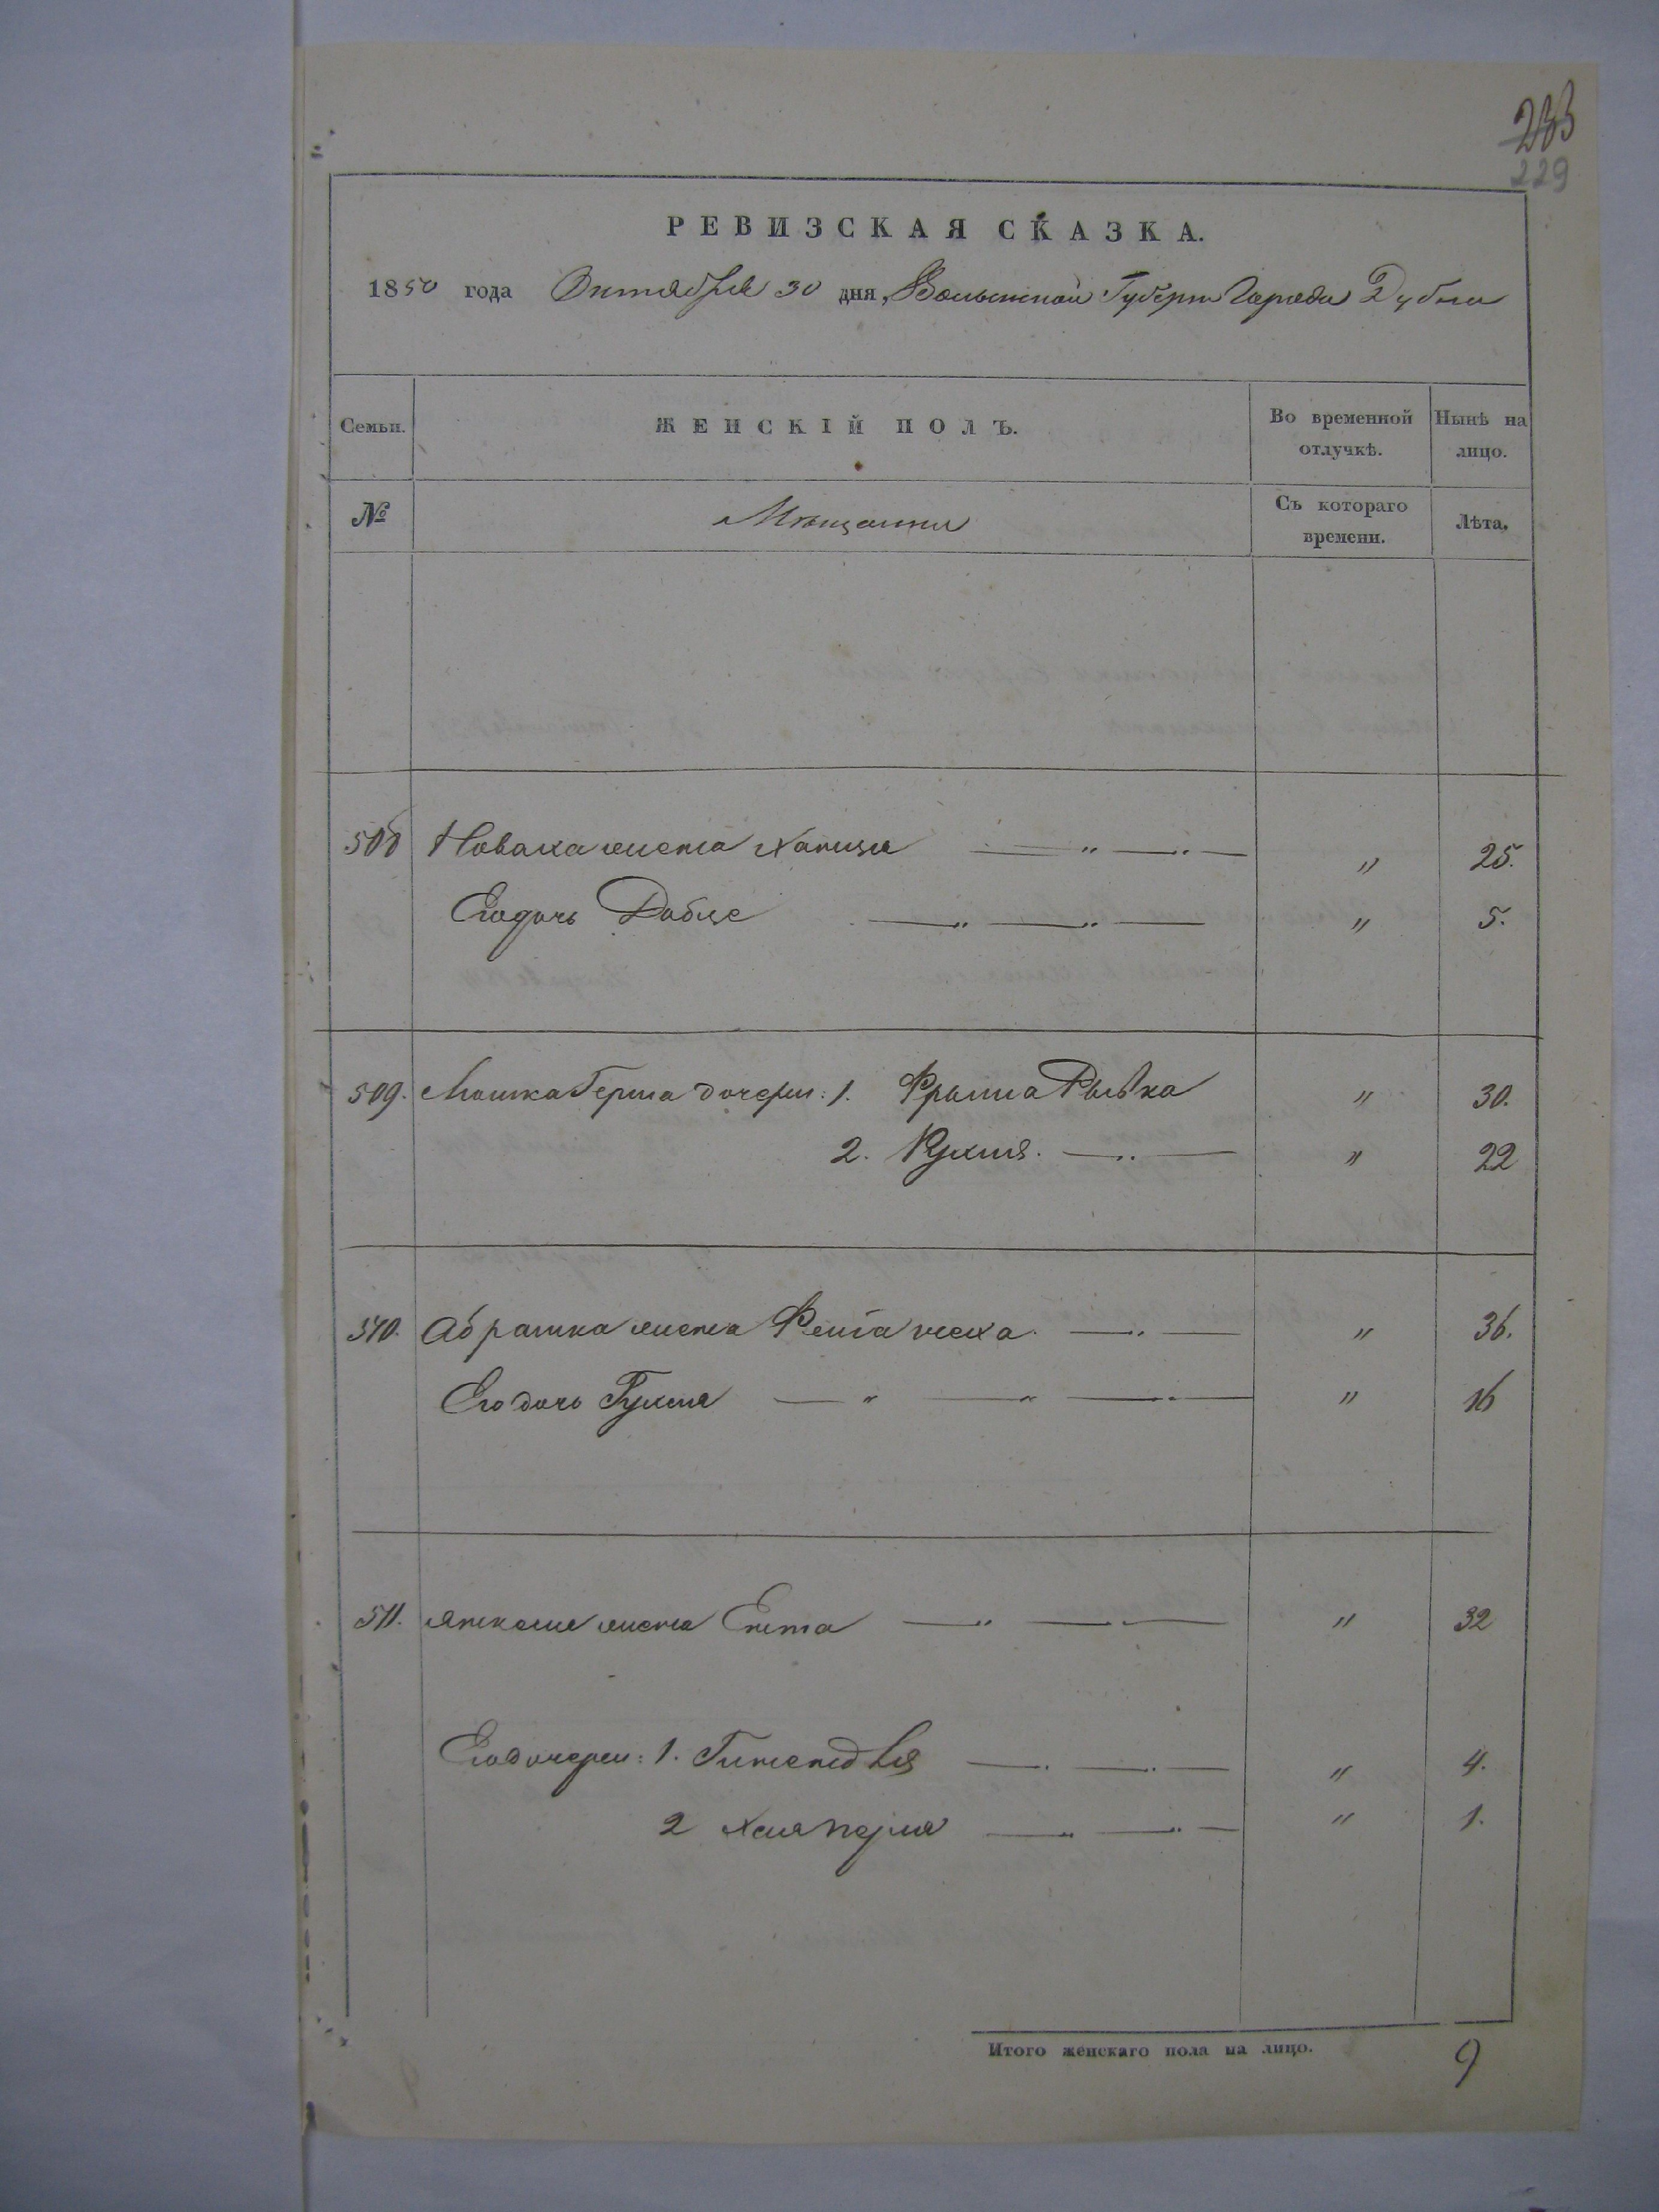 233
229
РЕВИЗСКАЯ СКАЗКА.
1850 года Октября 30 дня, Волынской Губерн Города Дубна
Семьи. ЖЕНСКІЙ ПОЛЪ. Во временной отлучкѣ. Нынѣ на лицо.
№ Мѣщанки Съ котораго времени. Лѣта.
508 жена 〃 25.
Его дочь Добце 〃 5.
509. Мошка Герша дочери: 1. Фрыма Рывка 〃 30.
2. Рухля. 〃 22
510. Абрамка жена Фейга 〃 36.
Его дочь Рухля 〃 16
511. жена Ента 〃 32
Его дочери: 1. 〃 4.
2 Хая перля 〃 1.
Итого женскаго пола на лицо. 9